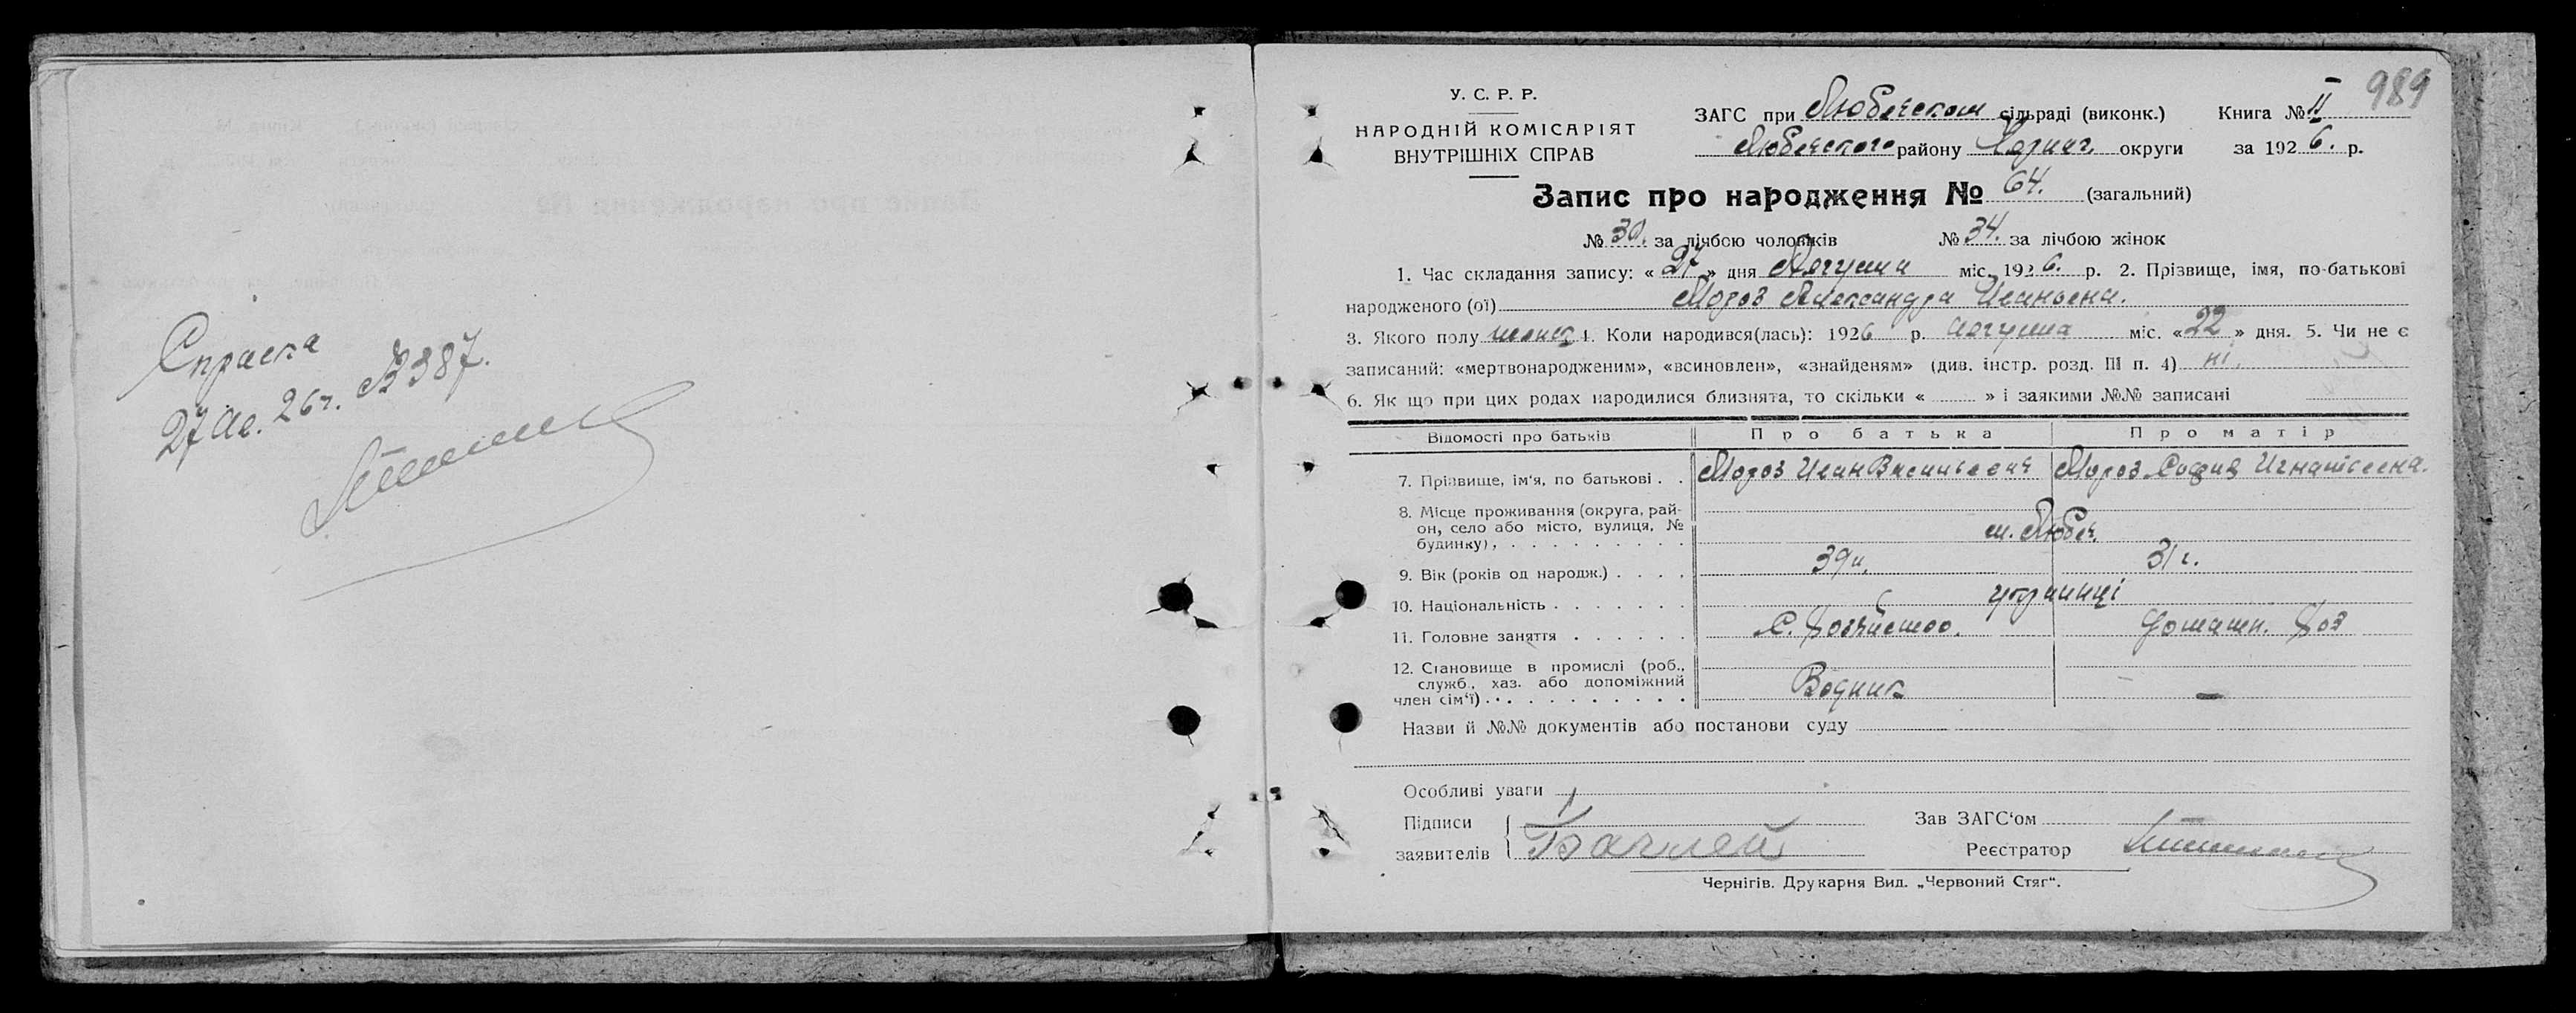 Справка
27 Ав. 26 г. № 387.
989
У. С. Р. Р.
НАРОДНІЙ КОМІСАРІЯТ
ВНУТРІШНІХ СПРАВ
ЗАГС при Любечском сільраді (виконк.) Книга № II
Любечского району Черниг. округи за 1926. р.
Запис про народження № 64. (загальний)
№ 30. за лічбою чоловіків № 34. за лічбою жінок
1. Час складання запису: « 27 » дня Августа міс. 1926. р. 2. Прізвище, імя, по-батькові
народженого (ої) Мороз Александра Ивановна.
3. Якого полу женск 4. Коли народився(лась): 1926 р. августа міс. « 22 » дня. 5. Чи не є
записаний: «мертвонародженим», «всиновлен», «знайденям» (див. інстр. розд. III п. 4) ні.
6. Як що при цих родах народилися близнята, то скільки « » і заякими №№ записані
Відомості про батьків Про батька Про матір
7. Прізвище, ім'я, по батькові . . Мороз Иван Васильевич Мороз София Игнатьевна.
8. Місце проживання (округа, рай-
он, село або місто, вулиця, №
будинку) . . . . . . . . . . м. Любеч.
9. Вік (років од народж.) . . . . 39 л. 31 г.
10. Національність . . . . . . . українці
11. Головне заняття . . . . . . С. Хозяйство. Домашн. Хоз
12. Становище в промислі (роб.,
служб., хаз. або допоміжний
член сім'ї) . . . . . . . . . . Водник —
Назви й №№ документів або постанови суду
Особливі уваги
Підписи Зав ЗАГС'ом
заявителів Реєстратор
Чернігів. Друкарня Вид. „Червоний Стяг“.